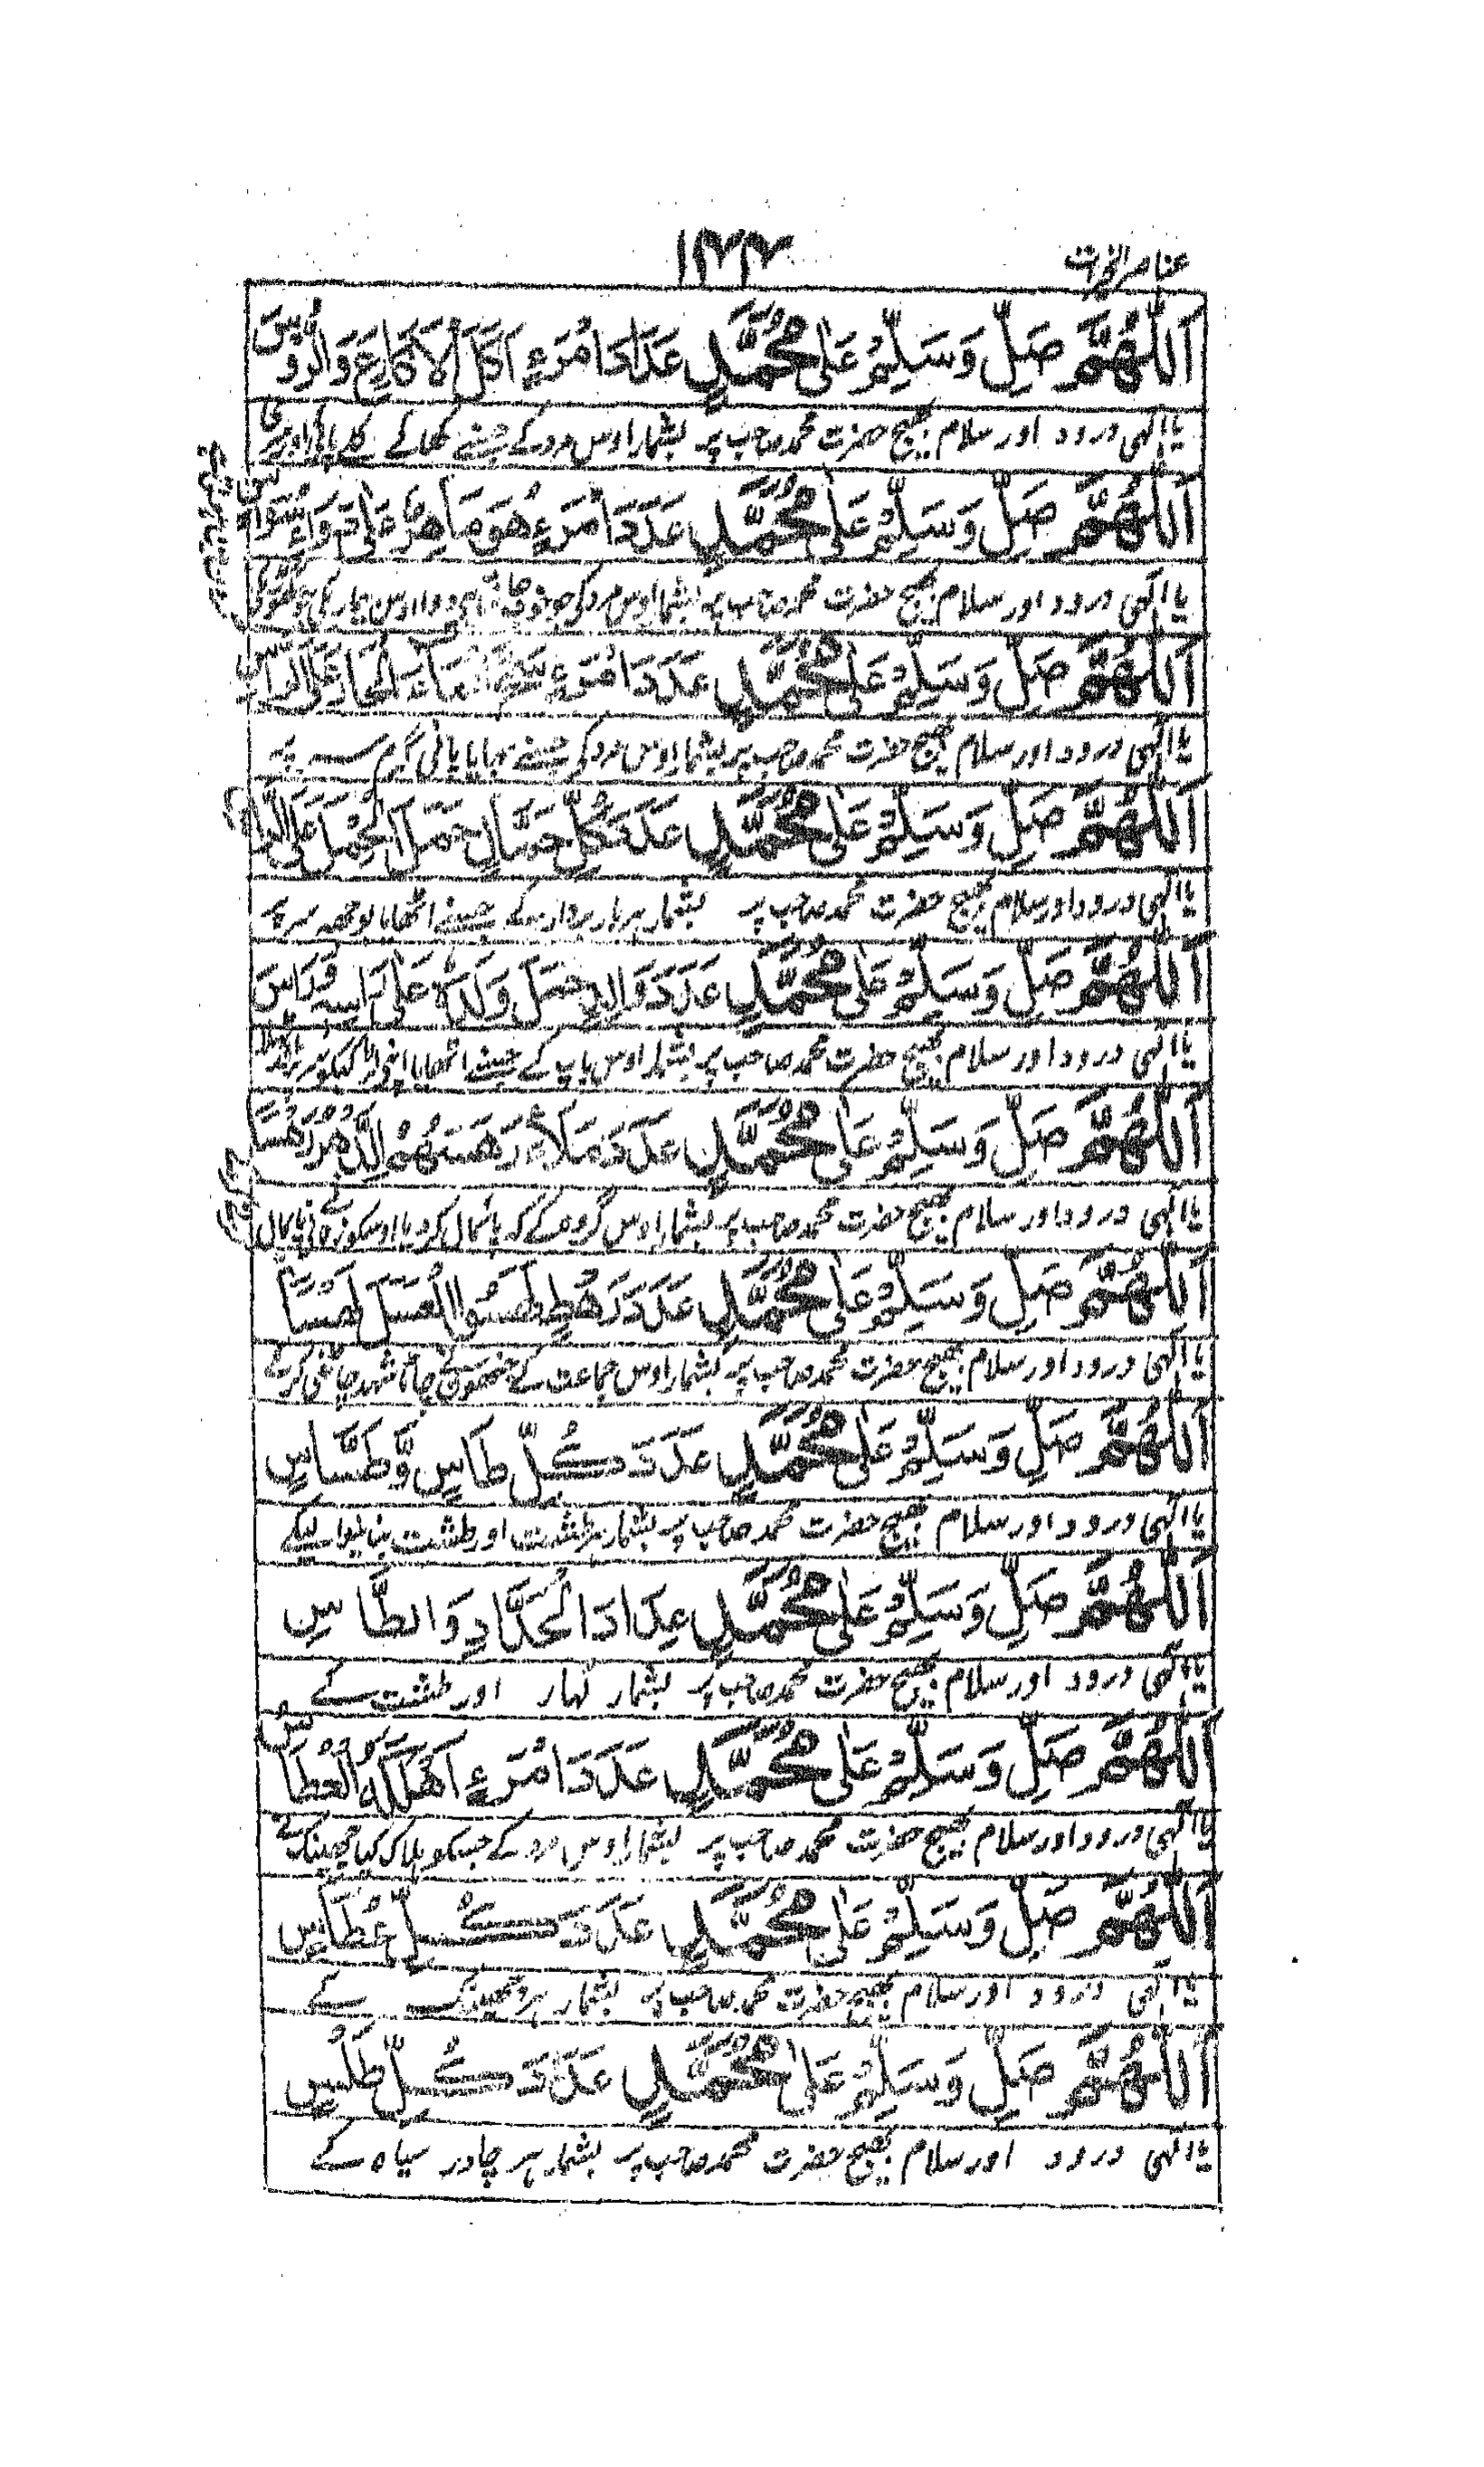 عناصر الخیرات
۱۳۲۲
اَللّٰهُمَّ صَلِّ وَسَلِّمْ عَلٰى مُحَمَّدٍ عَدَدَ امْرَءٍ اَكَلَ الْاَكَارِعَ وَالرُّوُسَ
یا الٰہی درود اور سلام بھیج حضرت محمد صاحب پر بشمار اوس مرد کے جسنے کھائے
اَللّٰهُمَّ صَلِّ وَسَلِّمْ عَلٰى مُحَمَّدٍ عَدَدَ امْرَءٍ هُوَ مَاهِرٌ عَلٰى دَوَاءِ
یا الٰہی درود اور سلام بھیج حضرت محمد صاحب پر بشمار اوس مرد کی جو
اَللّٰهُمَّ صَلِّ وَسَلِّمْ عَلٰى مُحَمَّدٍ عَدَدَ امْرَءٍ
یا الٰہی درود اور سلام بھیج حضرت محمد صاحب پر بشمار اوس مرد کی جسنے بہایا پانی گرم سر پہ
اَللّٰهُمَّ صَلِّ وَسَلِّمْ عَلٰى مُحَمَّدٍ عَدَدَ كُلِّ حَمَّالٍ حَمَلَ الْحِمْلَ عَلَى الرَّاسِ
یا الٰہی درود اور سلام بھیج حضرت محمد صاحب پر بشمار ہر بار بردار کے جسنے اٹھایا بوجھ سر پر
اَللّٰهُمَّ صَلِّ وَسَلِّمْ عَلٰى مُحَمَّدٍ عَدَدَ وَالِدٍ حَمَلَ وَلَدَهُ عَلٰى رَاسِهِ
یا الٰہی درود اور سلام بھیج حضرت محمد صاحب پر بشمار اوس باپ کے جسنے اٹھایا اپنی
اَللّٰهُمَّ صَلِّ وَسَلِّمْ عَلٰى مُحَمَّدٍ عَدَدَ مَلَاءٍ رَهَسَهُمُ الدَّهْرُ رَهْسًا
یا الٰہی درود اور سلام بھیج حضرت محمد صاحب پر بشمار اوس گروہ کے کہ پائمال کردیا اوسکو زمانے نے پائمال
اَللّٰهُمَّ صَلِّ وَسَلِّمْ عَلٰى مُحَمَّدٍ عَدَدَ رَهْطٍ لَحَسُوا الْعَسَلَ لَحْسًا
یا الٰہی درود اور سلام بھیج حضرت محمد صاحب پر بشمار اوس جماعت کے جنھوں نے چاٹا شہد
اَللّٰهُمَّ صَلِّ وَسَلِّمْ عَلٰى مُحَمَّدٍ عَدَدَ كُلِّ طَاسٍ وَّطَسَّاسٍ
یا الٰہی درود اور سلام بھیج حضرت محمد صاحب پر بشمار ہر طشت اور طشت بنانیوالیکے
اَللّٰهُمَّ صَلِّ وَسَلِّمْ عَلٰى مُحَمَّدٍ عِدَادَ الْحَدَّادِ وَالطَّاسِ
یا الٰہی درود اور سلام بھیج حضرت محمد صاحب پر بشمار لہار اور طشت کے
اَللّٰهُمَّ صَلِّ وَسَلِّمْ عَلٰى مُحَمَّدٍ عَدَدَ امْرَءٍ اَهْلَكَهُ الْعُطَاسُ
یا الٰہی درود اور سلام بھیج حضرت محمد صاحب پر بشمار اوس مرد کے جسکو ہلاک کیا چھینک نے
اَللّٰهُمَّ صَلِّ وَسَلِّمْ عَلٰى مُحَمَّدٍ عَدَدَ كُلِّ عُطَاسٍ
یا الٰہی درود اور سلام بھیج حضرت محمد صاحب پر بشمار ہر چھینک کے
اَللّٰهُمَّ صَلِّ وَسَلِّمْ عَلٰى مُحَمَّدٍ عَدَدَ كُلِّ طَلَسٍ
یا الٰہی درود اور سلام بھیج حضرت محمد صاحب پر بشمار ہر چادر سیاہ کے